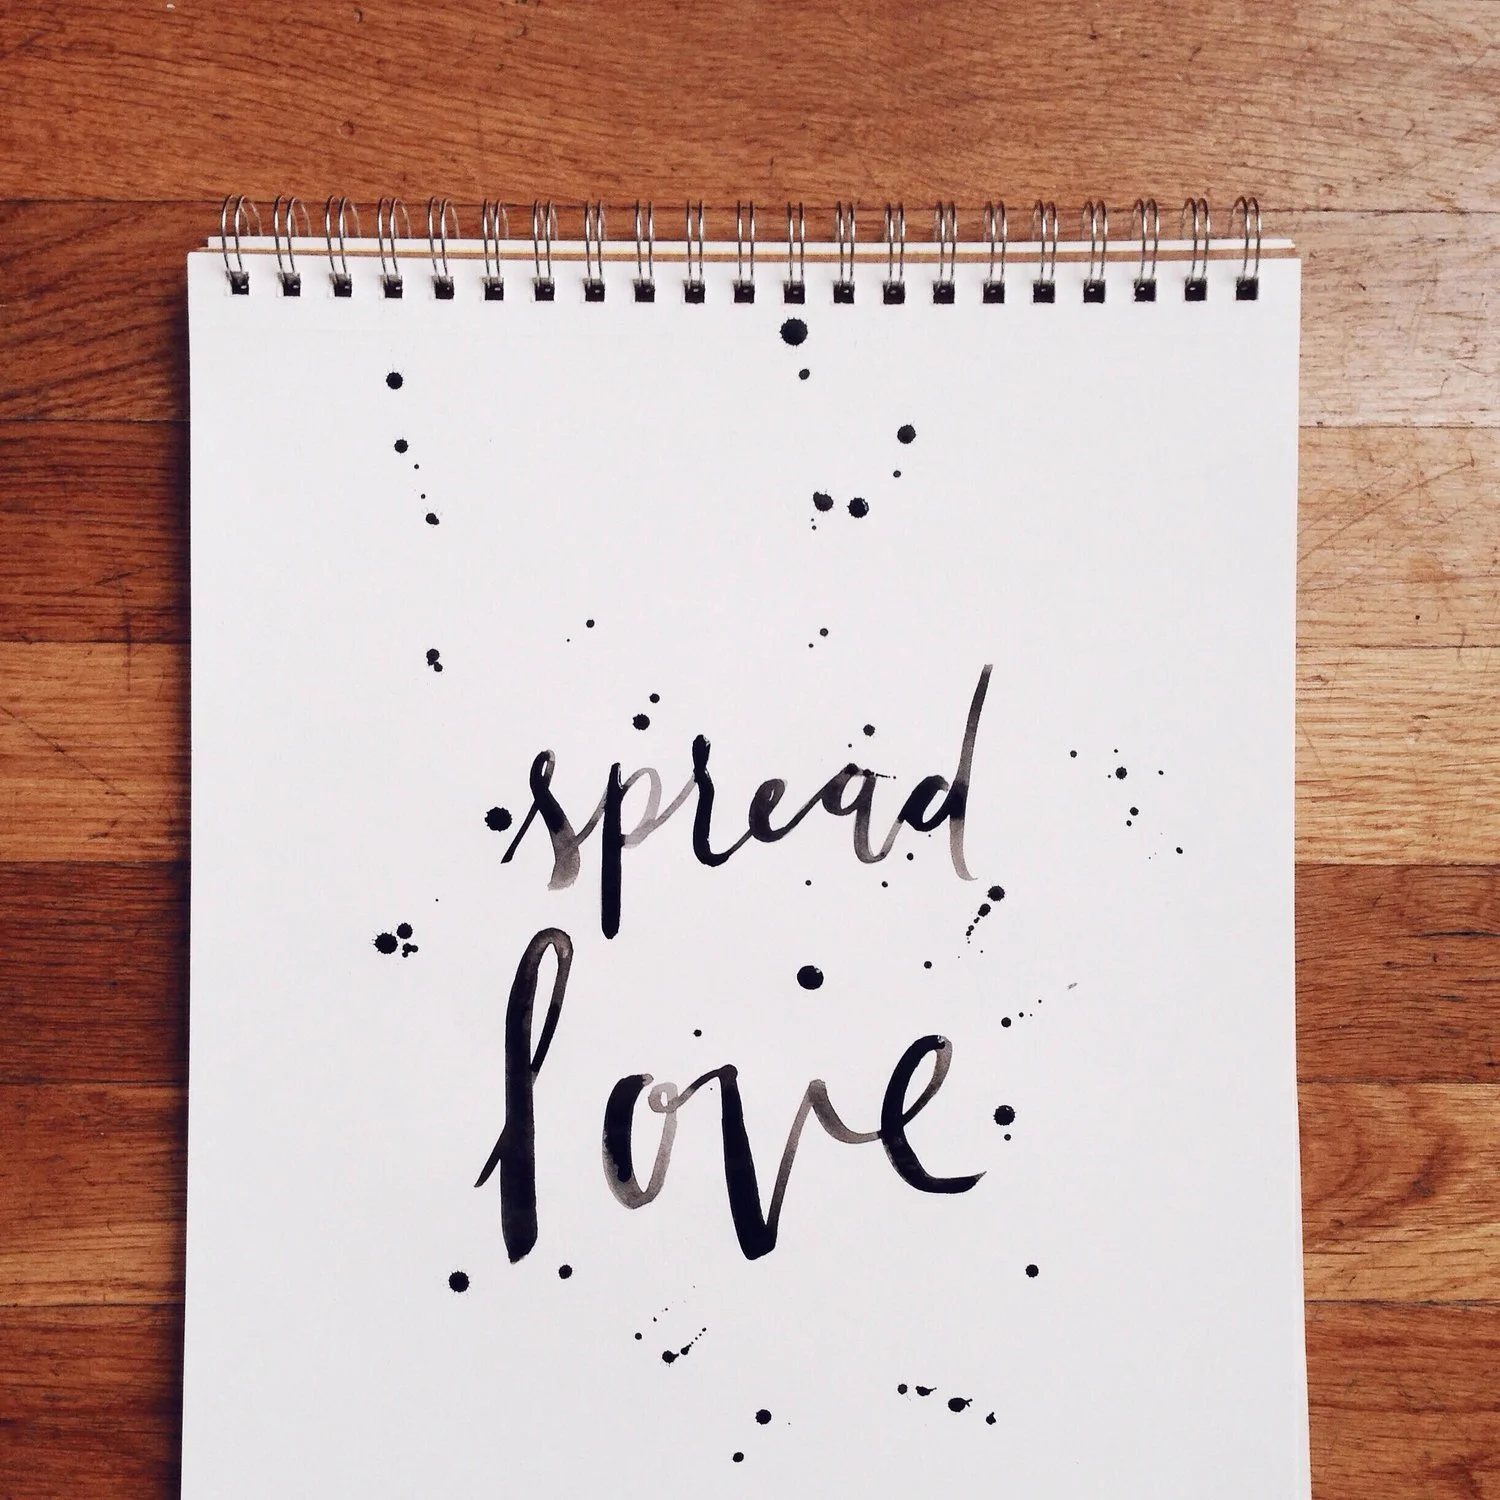 spread
love